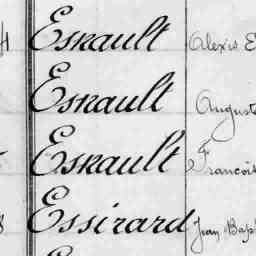 Esnault Alexis E
Esnault Auguste
Esnault François
Essirard Jean Bap